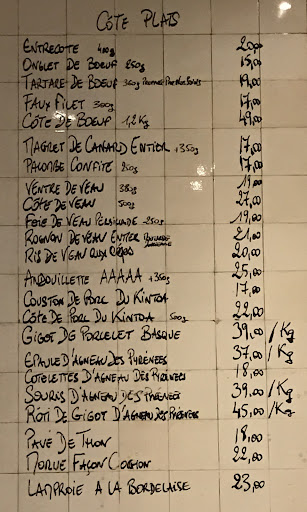 CÔTE PLATS
ENTRECOTE 400g 20,00
ONGLET DE BOEUF 250g 15,00
TARTARE DE BOEUF 350g 19,00
FAUX FILET 300g 17,00
CÔTE DE BOEUF 1,2 Kg 49,00
MAGRET DE CANARD ENTIER +350g 17,00
PALOMBE CONFITE 250g 17,00
VENTRE DE VEAU 19,00
CÔTE DE VEAU 500g 27,00
FOIE DE VEAU PERSILLADE 250g 19,00
ROGNON DE VEAU ENTIER 21,00
RIS DE VEAU AUX CÈPES 20,00
ANDOUILLETTE AAAAA +350g 25,00
COUSTON DE PORC DU KINTOA 17,00
CÔTE DE PORC DU KINTOA 500g 22,00
GIGOT DE PORCELET BASQUE 39,00 /Kg
EPAULE D'AGNEAU DES PYRENEES 37,00 /Kg
COTELETTES D'AGNEAU DES PYRENEES 18,00
SOURIS D'AGNEAU DES PYRENEES 39,00 /Kg
RÔTI DE GIGOT D'AGNEAU DES PYRENEES 45,00 /Kg
PAVE DE THON 18,00
MORUE FAÇON 22,00
LAMPROIE A LA BORDELAISE 23,00